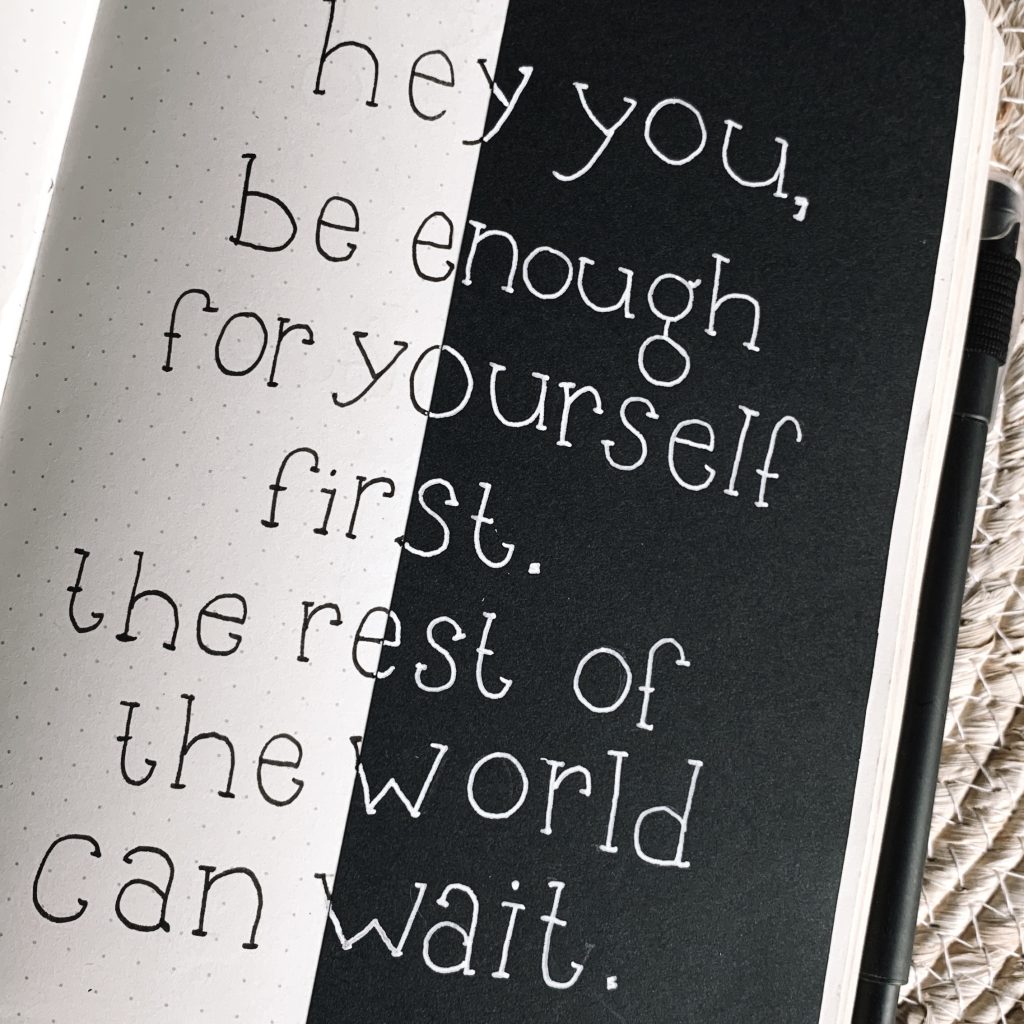 hey you,
be enough
for yourself
first.
the rest of
the world
can wait.